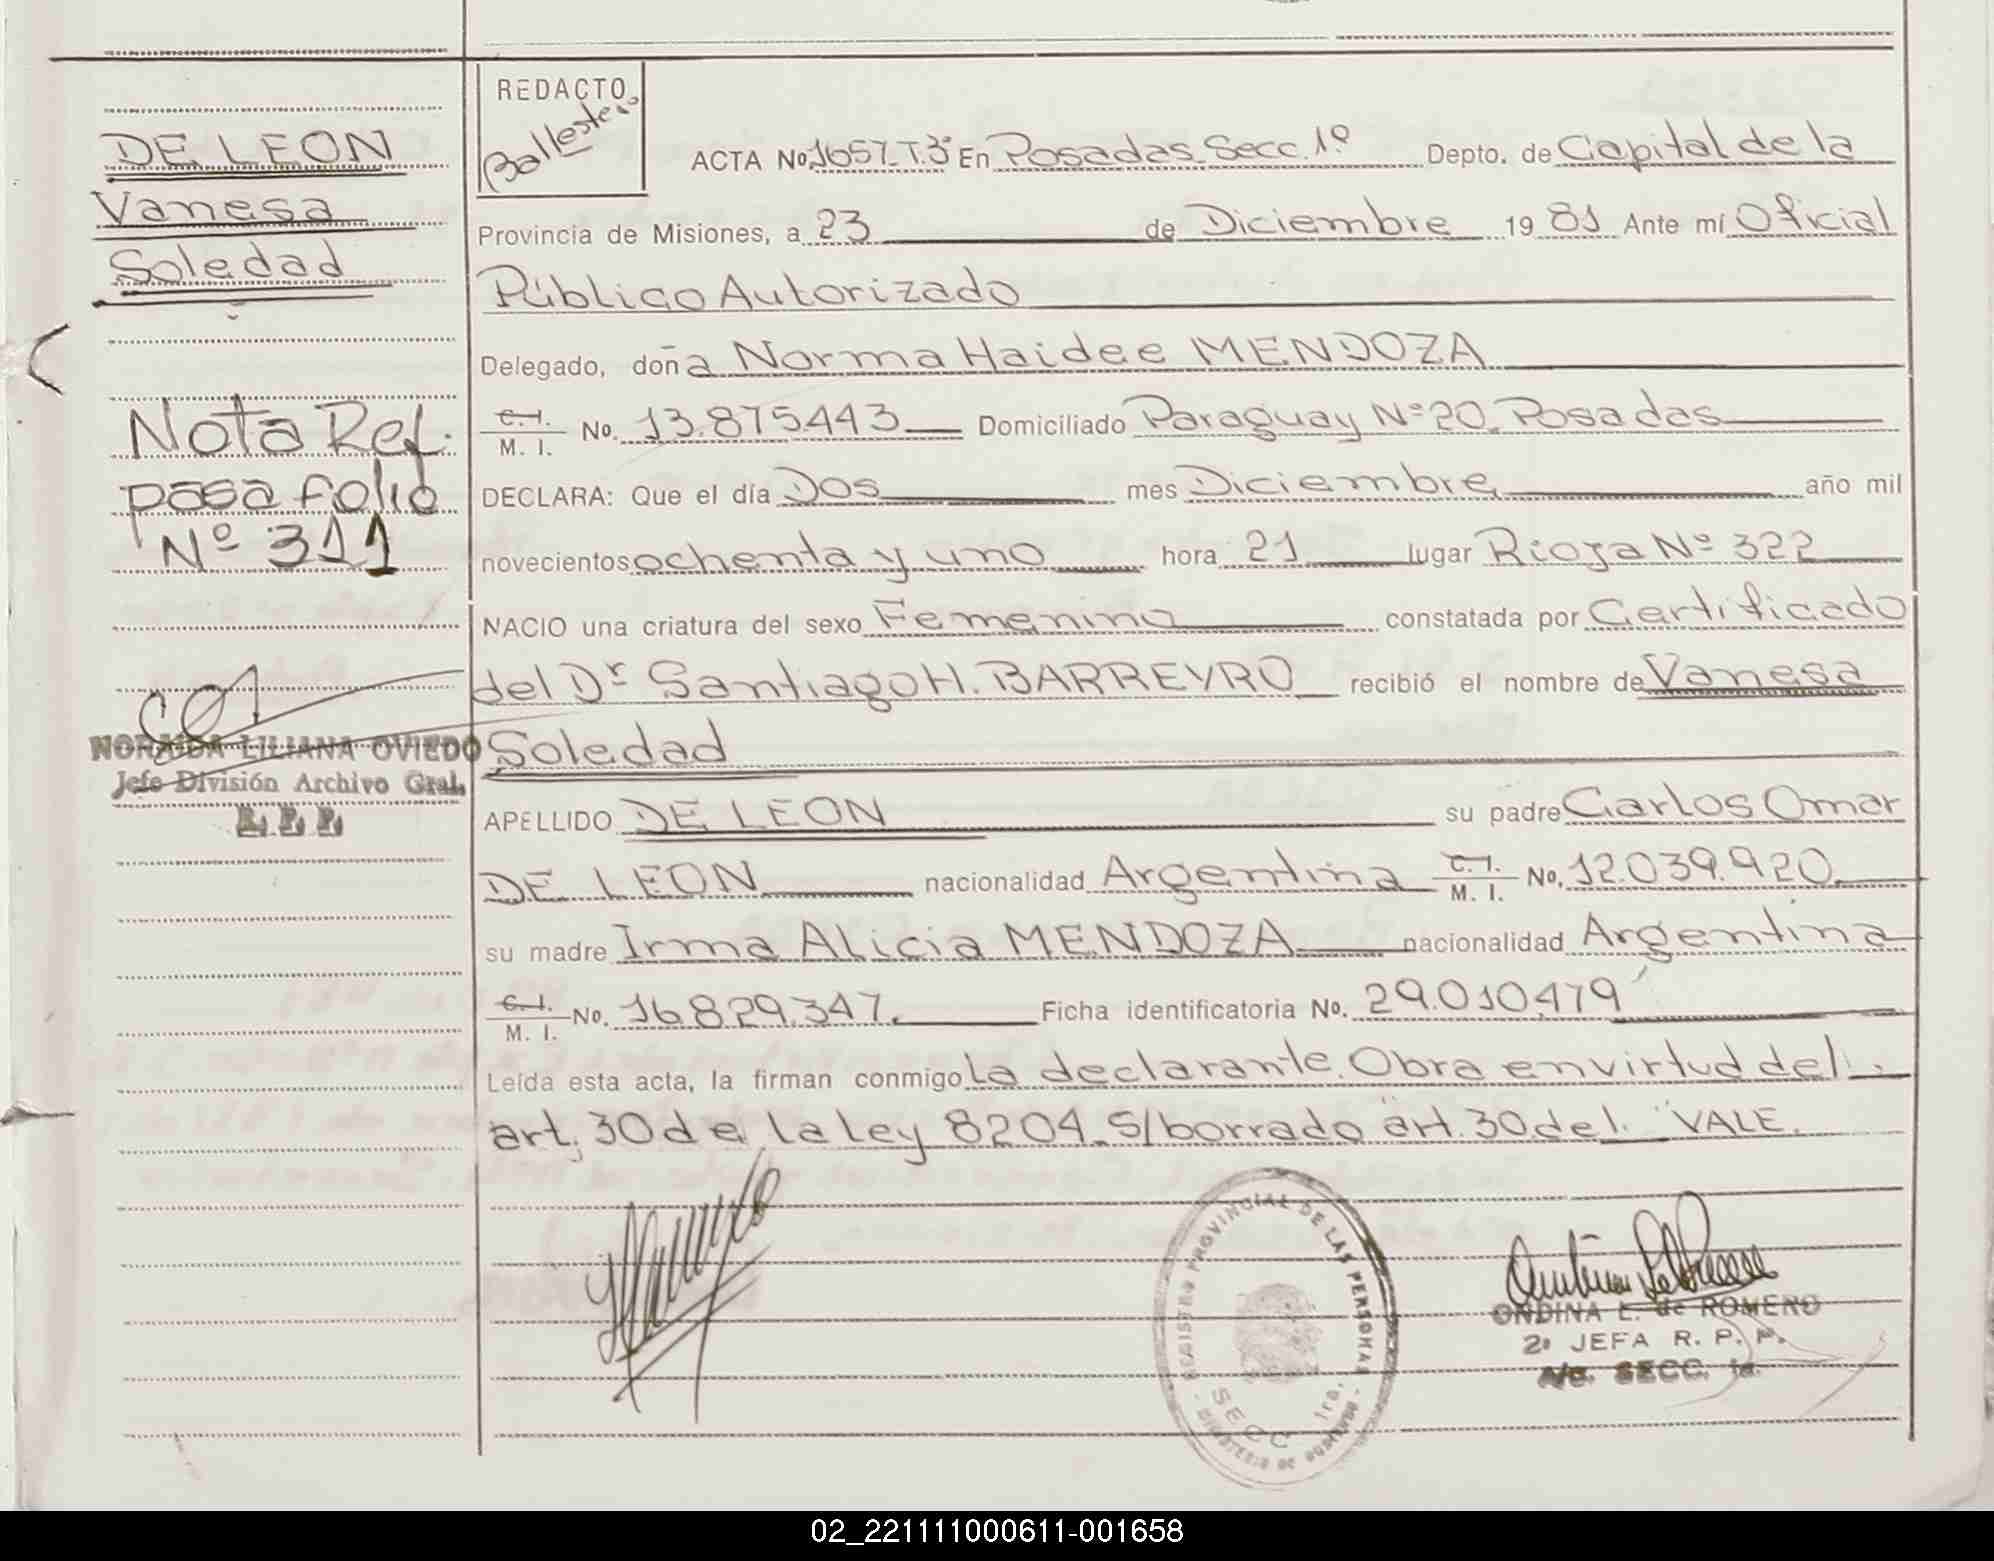 DE LEON
Vanesa
Soledad
Nota Ref.
pasa folio
Nº 311
NORAIDA LILIANA OVIEDO
Jefe División Archivo Gral.
R. P. P.
REDACTO
ACTA No 1657 T.3º En Posadas Secc. 1º Depto. de Capital de la
Provincia de Misiones, a 23 de Diciembre 1981 Ante mí Oficial
Público Autorizado
Delegado, doña Norma Haidee MENDOZA
C. I.
M. I. No. 13.875.443 Domiciliado Paraguay Nº 20 Posadas
DECLARA: Que el día Dos mes Diciembre año mil
novecientos ochenta y uno hora 21 lugar Rioja Nº 322
NACIO una criatura del sexo Femenino constatada por Certificado
del Dr Santiago H. BARREYRO recibió el nombre de Vanesa
Soledad
APELLIDO DE LEON su padre Carlos Omar
DE LEON nacionalidad Argentina C. I. M. I. No. 12.039.920
su madre Irma Alicia MENDOZA nacionalidad Argentina
C. I.
M. I. No. 16.829.347. Ficha identificatoria No. 29.010.479
Leída esta acta, la firman conmigo La declarante. Obra en virtud del
art. 30 de la ley 8204. S/borrado "art. 30 del" VALE.
REGISTRO PROVINCIAL DE LAS PERSONAS
SECC 1ra.
MINISTERIO DE GOBIERNO
ONDINA L. de ROMERO
2ª JEFA R. P. P.
A/c. SECC. 1a.
02_221111000611-001658